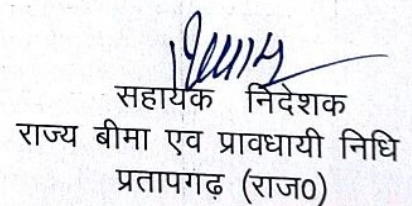 सहायक निदेशक
राज्य बीमा एव प्रावधायी निधि
प्रतापगढ़ (राज0)